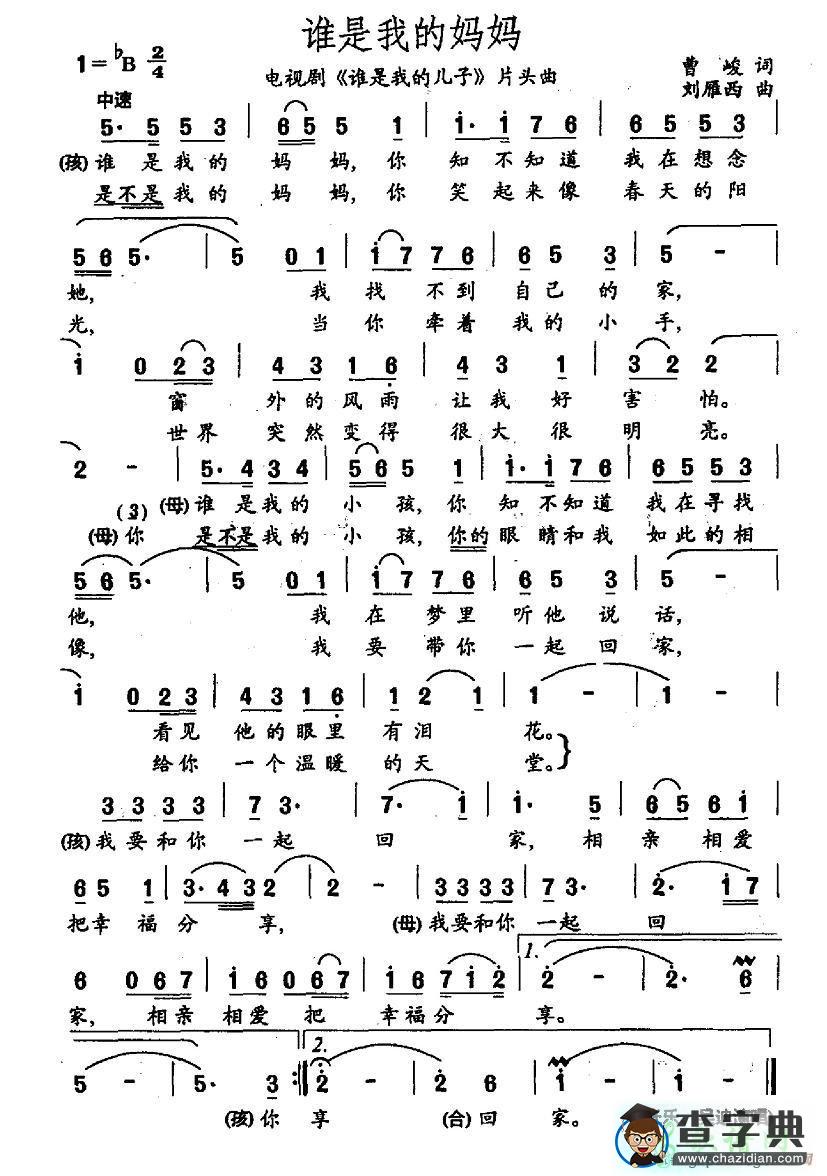 谁是我的妈妈
1=♭B 2/4
电视剧《谁是我的儿子》片头曲
曹峻 词
刘雁西 曲
中速
5· 5 5 3 | 6 5 5 1 | i· i 7 6 | 6 5 5 3 |
(孩)谁 是 我 的 妈 妈, 你 知 不 知 道 我 在 想 念
是不是 我 的 妈 妈, 你 笑 起 来 像 春 天 的 阳
5 6 5· | 5 0 1 | i 7 7 6 | 6 5 3 | 5 - |
她, 我 找 不 到 自 己 的 家,
光, 当 你 牵 着 我 的 小 手,
i 0 2 3 | 4 3 1 6 | 3 3 1 | 3 2 2 |
窗 外 的 风 雨 让 我 好 害 怕。
世 界 突 然 变 得 很 大 很 明 亮。
2 - | 5· 4 3 4 | 5 6 5 1 | i· i 7 6 | 6 5 5 3 |
(3) (母)谁 是 我 的 小 孩, 你 知 不 知 道 我 在 寻 找
(母)你 是不是 我 的 小 孩, 你的 眼 睛 和 我 如 此 的 相
5 6 5· | 5 0 1 | i 7 7 6 | 6 5 3 | 5 - |
他, 我 在 梦 里 听 他 说 话,
像, 我 要 带 你 一 起 回 家,
i 0 2 3 | 4 3 1 6 | 1 2 1 | 1 - | 1 - |
看 见 他 的 眼 里 有 泪 花。
给 你 一 个 温 暖 的 天 堂。
3 3 3 3 | 7 3· | 7· i | i· 5 | 6 5 6 i |
(孩)我 要 和 你 一 起 回 家, 相 亲 相 爱
6 5 1 | 3· 4 3 2 | 2 - | 3 3 3 3 | 7 3· | 2· i 7 |
把 幸 福 分 享, (母)我 要 和 你 一 起 回
6 0 6 7 | i 6 0 6 7 | i 6 7 i 2 | 1. 2 - | 2· 6 |
家, 相 亲 相 爱 把 幸 福 分 享。
5 - | 5· 3 :| 2. 2 - | 2 6 | i - | i - ‖
(孩)你 享 (合)回 家。
查字典
www.chazidian.com